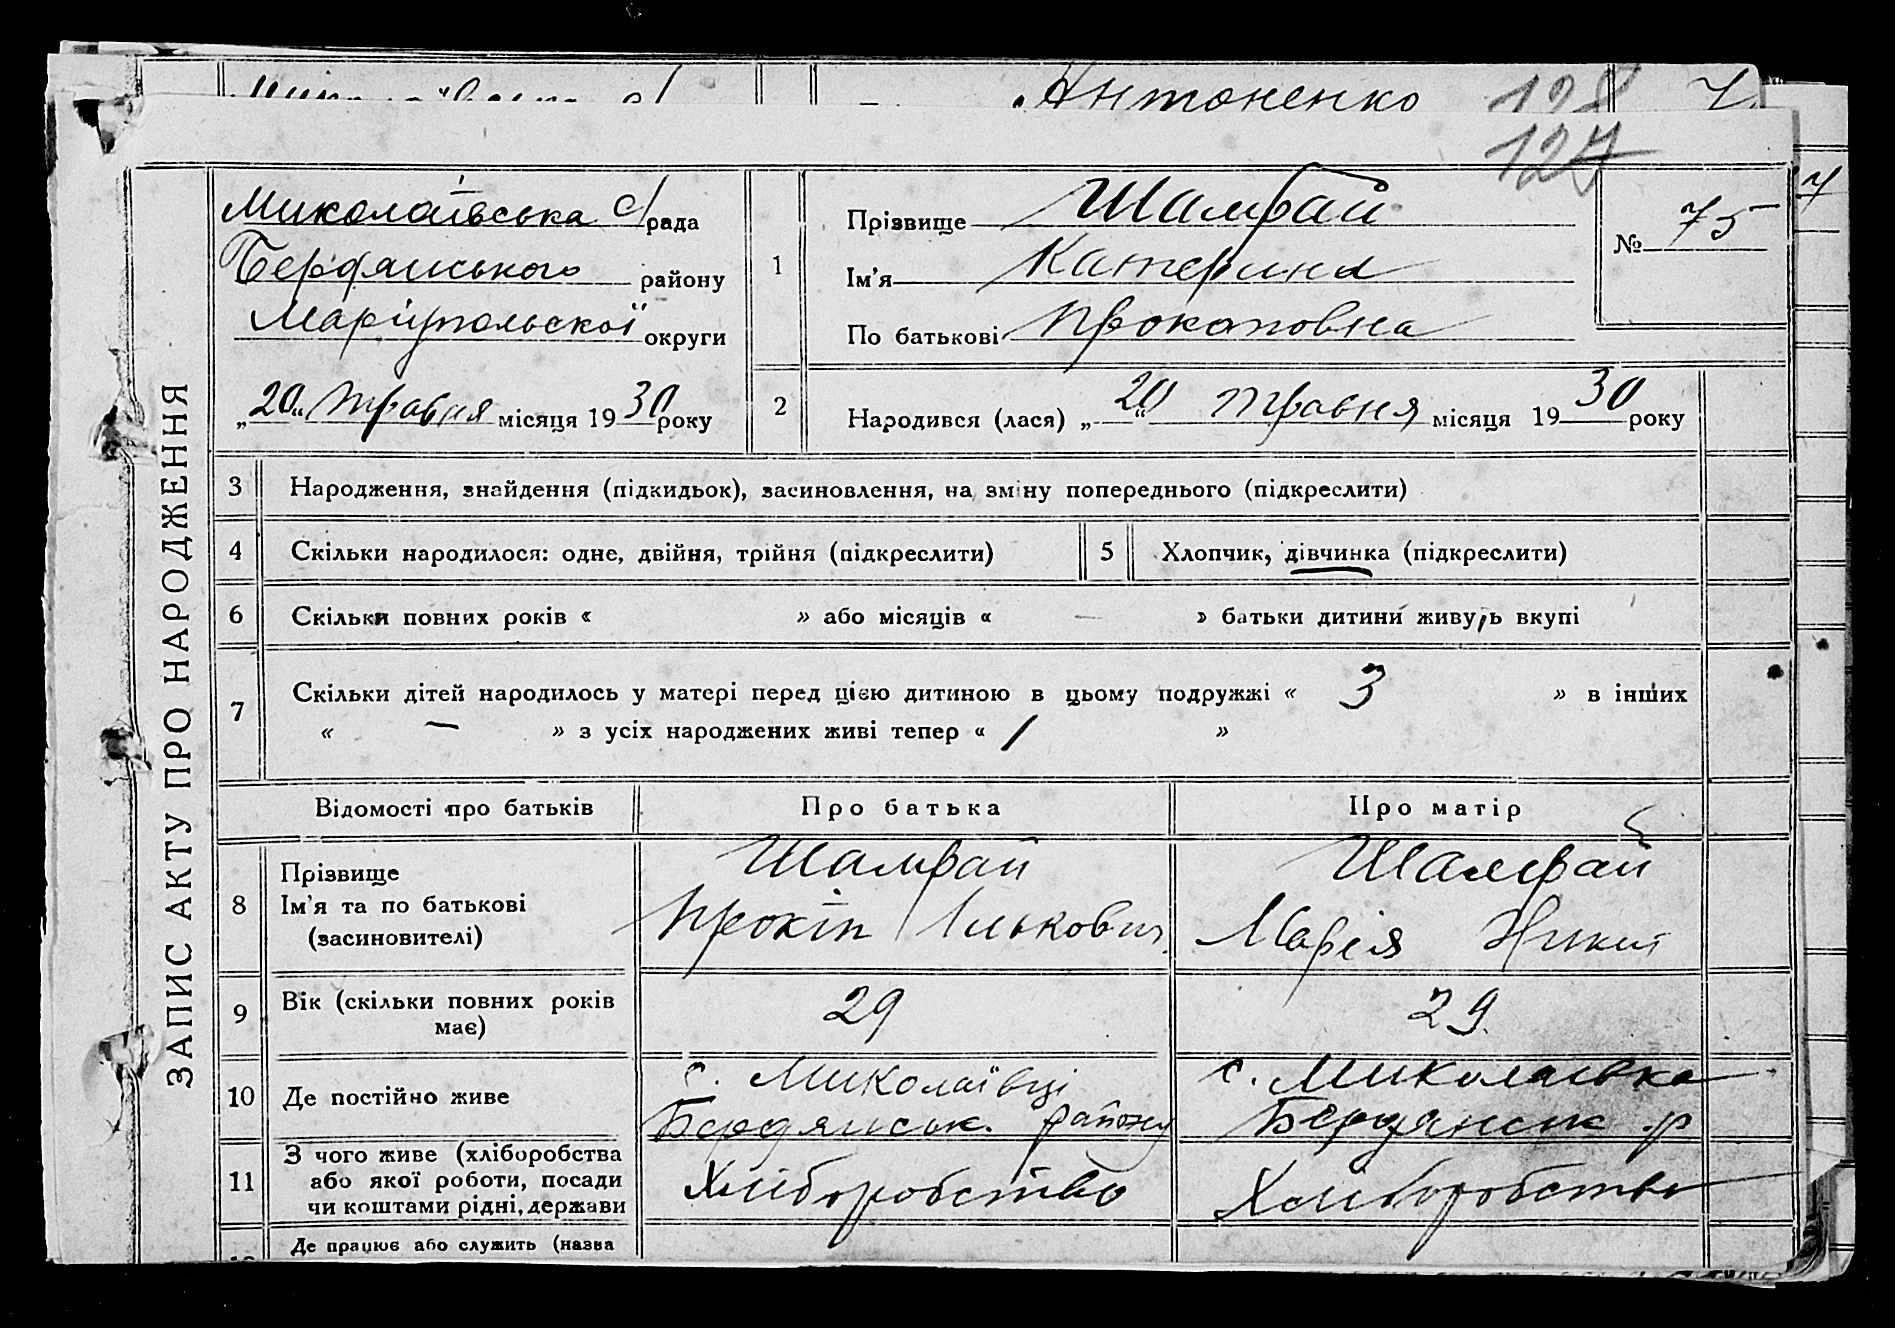 Антоненко 128
127
ЗАПИС АКТУ ПРО НАРОДЖЕННЯ
Миколаївська с/рада
Бердянського району
Маріупольскої округи
„20“ травня місяця 1930 року
1
Прізвище Шамрай
Ім'я Катерина
По батькові Прокоповна
№ 75
2 Народився (лася) „20“ травня місяця 1930 року
3 Народження, знайдення (підкидьок), засиновлення, на зміну попереднього (підкреслити)
4 Скільки народилося: одне, двійня, трійня (підкреслити)
5 Хлопчик, дівчинка (підкреслити)
6 Скільки повних років « » або місяців « — » батьки дитини живуть вкупі
7 Скільки дітей народилось у матері перед цією дитиною в цьому подружжі « 3 » в інших
« — » з усіх народжених живі тепер « 1 »
Відомості про батьків Про батька Про матір
8 Прізвище
Ім'я та по батькові
(засиновителі)
Шамрай
Прокіп Ількович
Шамрай
Марія Никит
9 Вік (скільки повних років
має)
29 29
10 Де постійно живе
с. Миколаївці
Бердянськ. району
с. Миколаївка
Бердянськ р
11 З чого живе (хліборобства
або якої роботи, посади
чи коштами рідні, держави
Хліборобство Хліборобство
Де працює або служить (назва